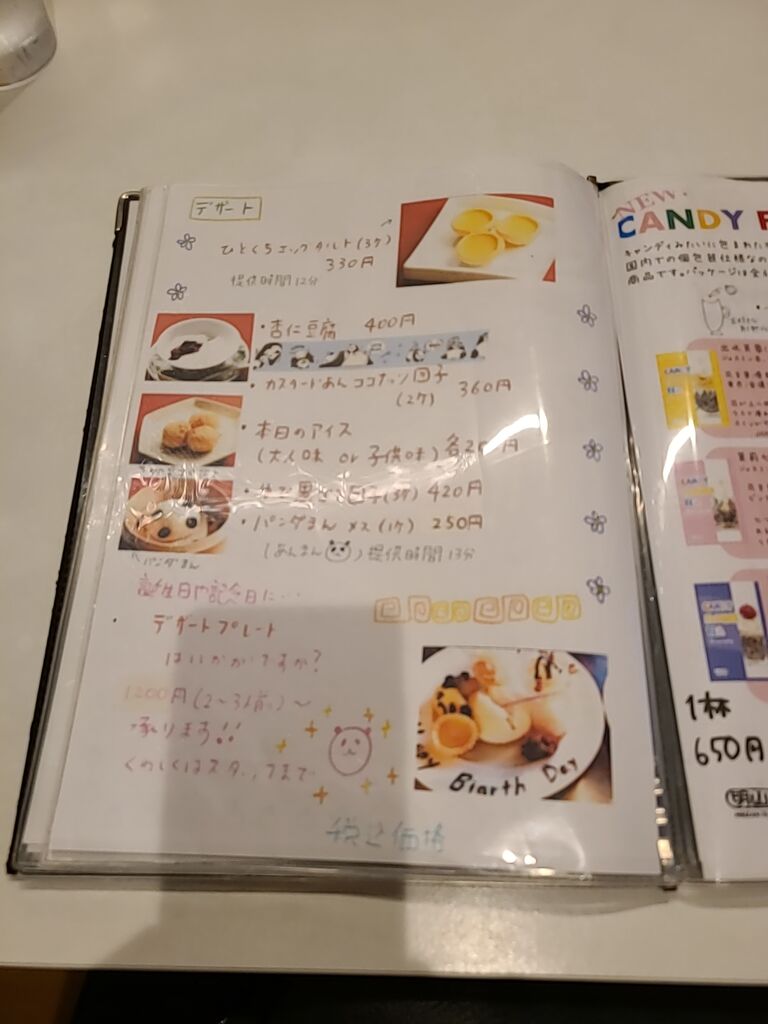 デザート
ひとくちエッグタルト(3ケ)
330円
提供時間12分
・杏仁豆腐 400円
・カスタードあんココナッツ団子
(2ケ) 360円
・本日のアイス
(大人味 or 子供味) 各
円
団子(3ケ) 420円
・パンダまん メス(1ケ) 250円
(あんまん) 提供時間13分
パンダまん
誕生日や記念日に…
・デザートプレート
はいかがですか?
1200円(2〜3人前)〜
承ります!!
くわしくはスタッフまで
Biarth Day
税込価格
NEW!
CANDY
キャンディみたいに包まれた
国内での個包装仕様なの
商品です。パッケージは全
1杯
650円